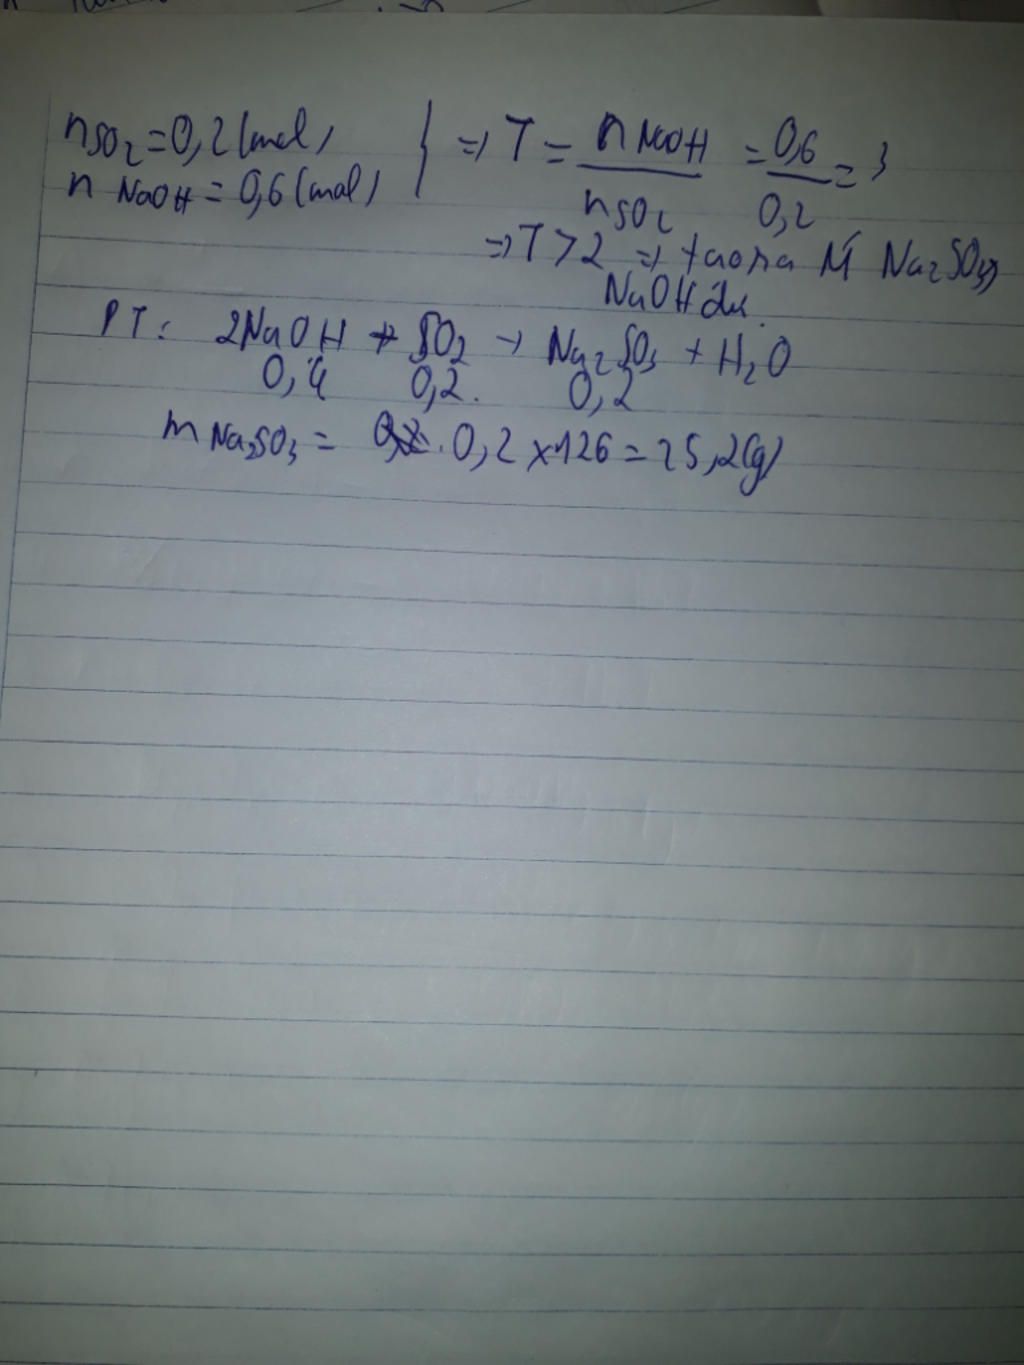 nSO2 = 0,2 (mol)
n NaOH = 0,6 (mol)
} => T = nNaOH / nSO2 = 0,6 / 0,2 = 3
=> T > 2 => tạo ra M' Na2SO3,
NaOH dư.
PT: 2NaOH + SO2 → Na2SO3 + H2O
0,4 0,2. 0,2
m Na2SO3 = 0,2 × 126 = 25,2 (g)